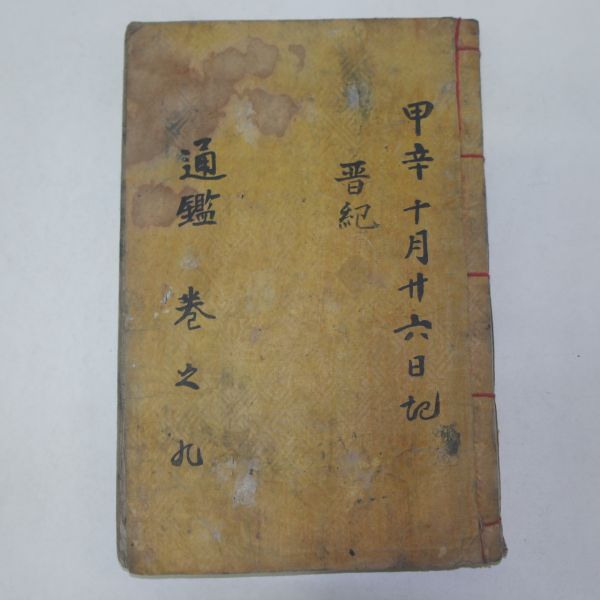 甲辛十月廿六日記
晋紀
通鑑 卷之九